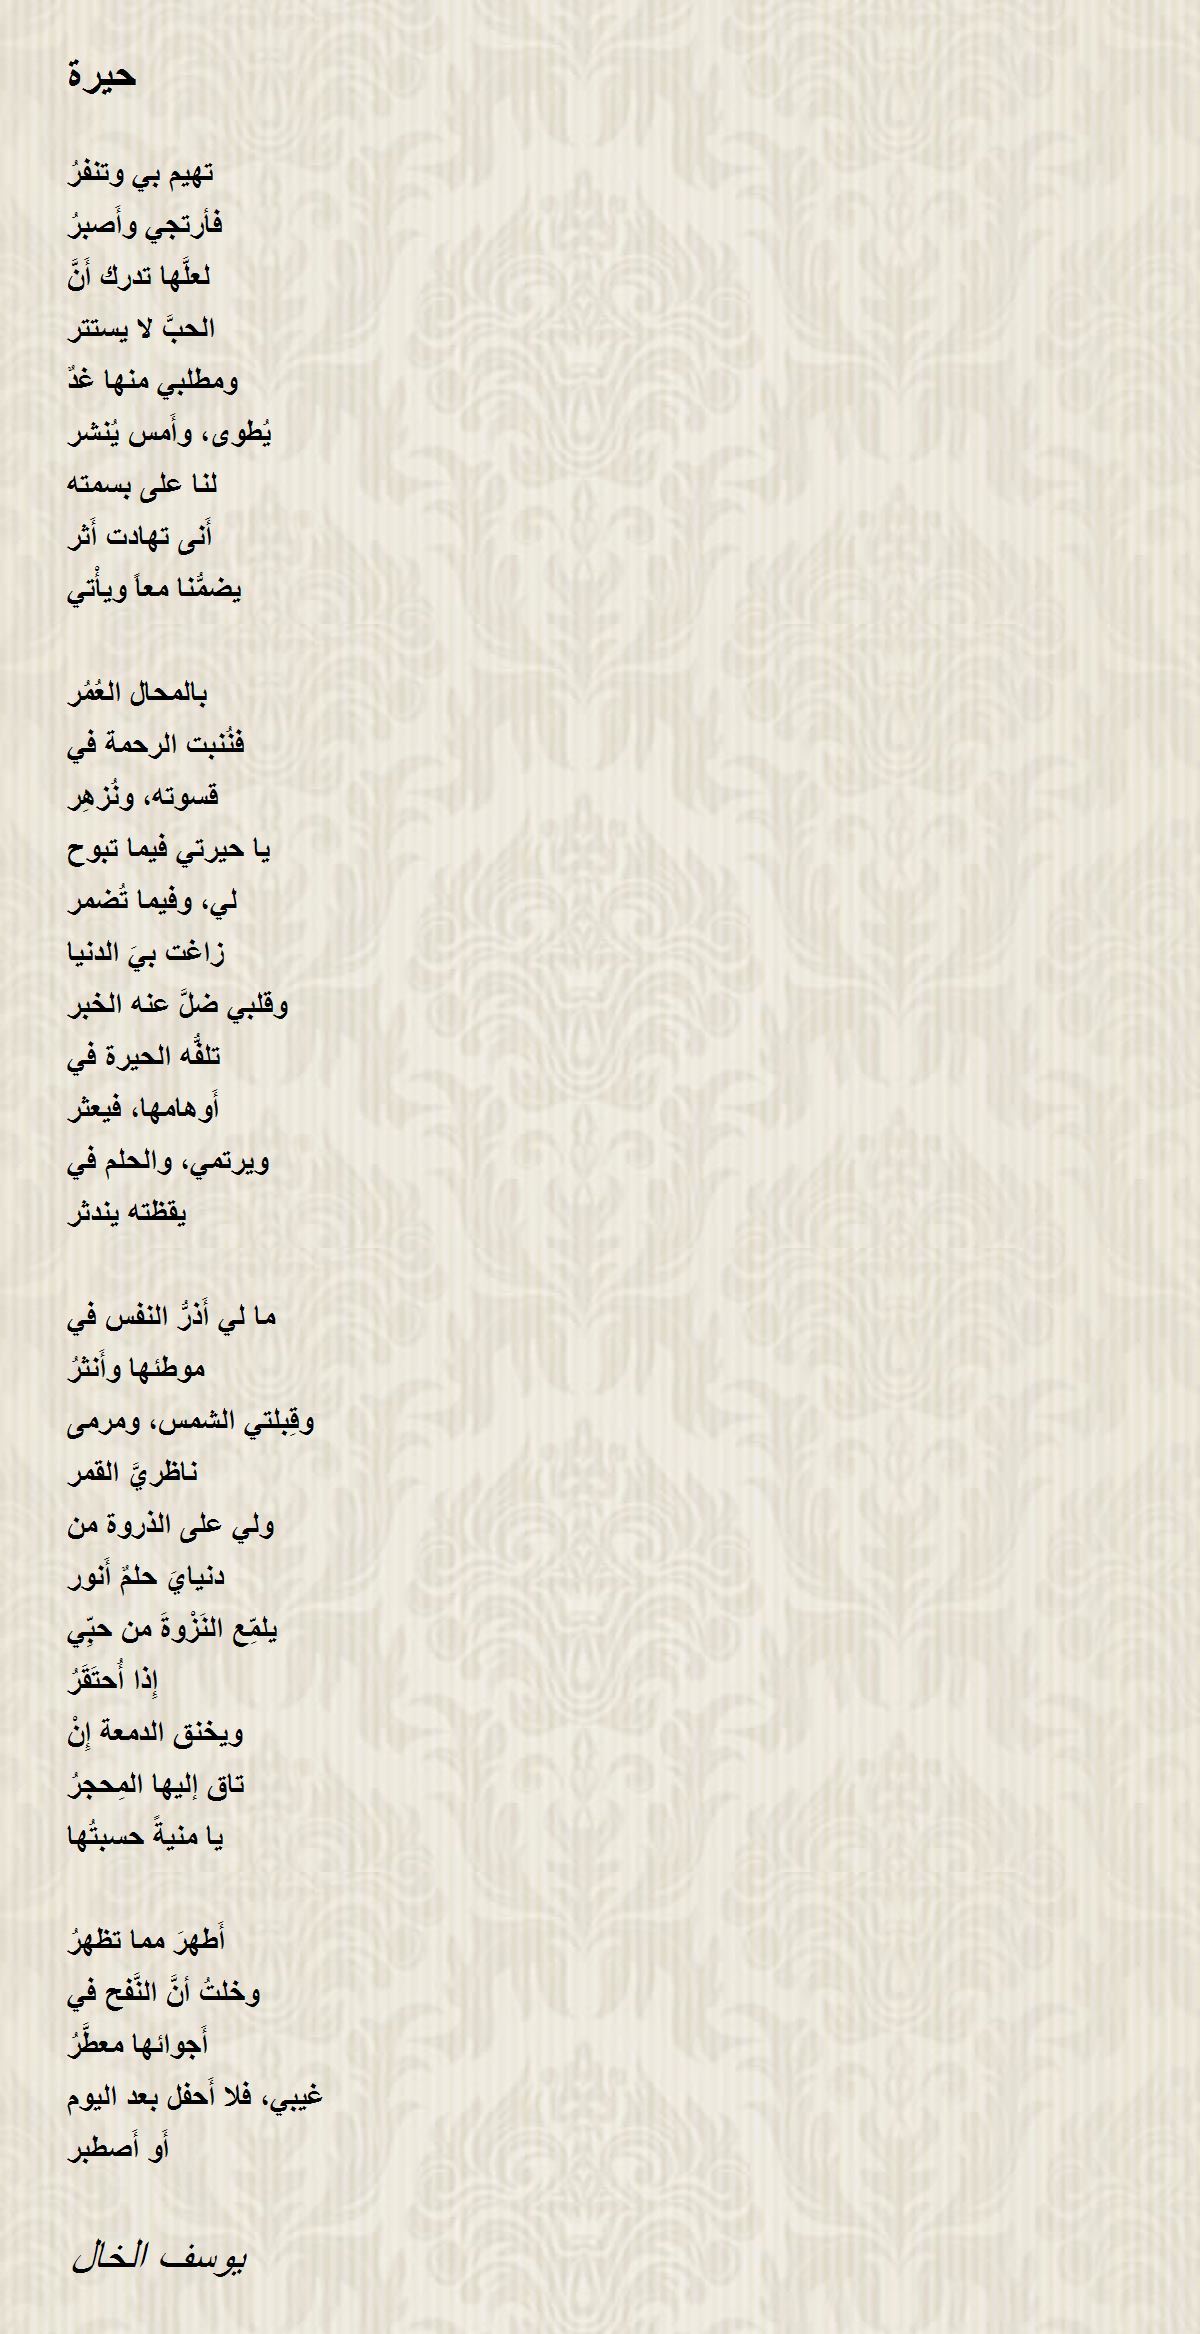 حيرة
تهيم بي وتنفرُ
فأرتجي وأَصبرُ
لعلَّها تدرك أَنَّ
الحبَّ لا يستتر
ومطلبي منها غدٌ
يُطوى، وأَمس يُنشر
لنا على بسمته
أَنى تهادت أَثر
يضمُّنا معاً ويأْتي
بالمحال العُمُر
فنُنبت الرحمة في
قسوته، ونُزهِر
يا حيرتي فيما تبوح
لي، وفيما تُضمر
زاغت بيَ الدنيا
وقلبي ضلَّ عنه الخبر
تلفُّه الحيرة في
أَوهامها، فيعثر
ويرتمي، والحلم في
يقظته يندثر
ما لي أَذرُّ النفس في
موطئها وأَنثرُ
وقِبلتي الشمس، ومرمى
ناظريَّ القمر
ولي على الذروة من
دنيايَ حلمٌ أَنور
يلمِّع النَزْوةَ من حبِّي
إِذا أُحتَقَرُ
ويخنق الدمعة إِنْ
تاق إليها المِحجرُ
يا منيةً حسبتُها
أَطهرَ مما تظهرُ
وخلتُ أنَّ النَّفح في
أَجوائها معطَّرُ
غيبي، فلا أَحفل بعد اليوم
أَو أَصطبر
يوسف الخال